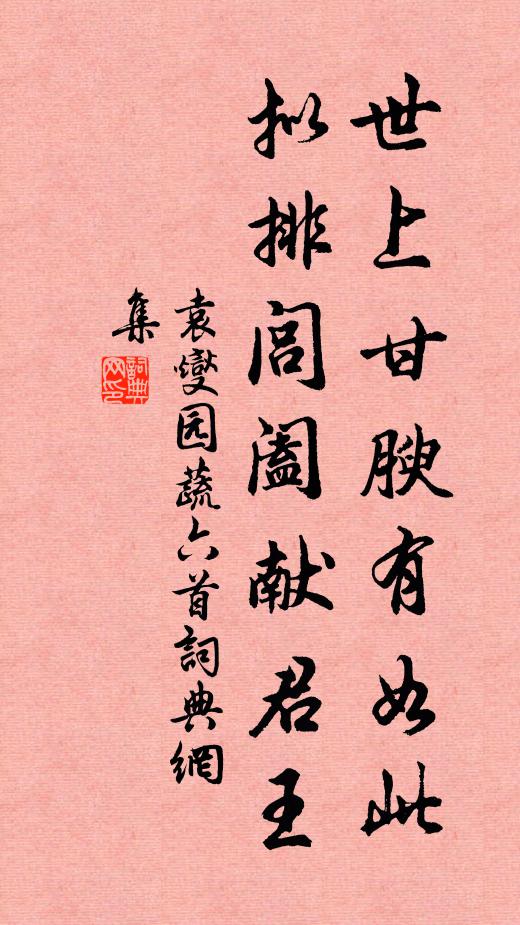 世上甘腴有如此
拟排闾阖献君王
袁燮园蔬六首詞典網
集
詞典
网印